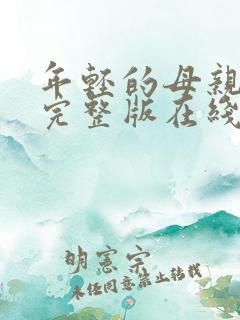 年轻的母亲
完整版在线
明宪宗
未经同意禁止转载